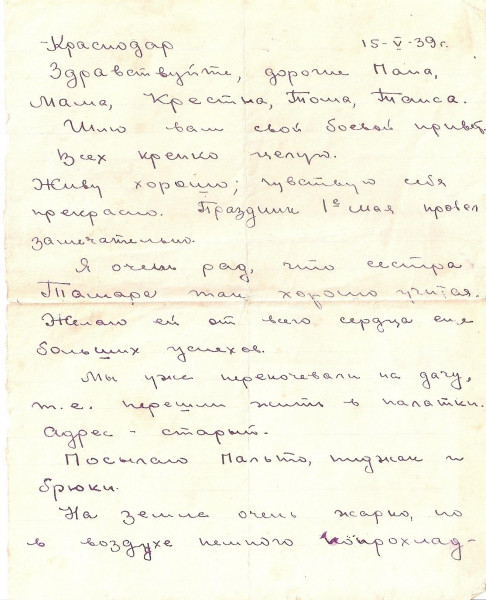 -Краснодар 15-V-39 г.
Здравствуйте, дорогие Папа,
Мама, Крестна, Тома, Таиса.
Шлю вам свой боевой привет.
Всех крепко целую.
Живу хорошо; чувствую себя
прекрасно. Праздник 1е мая провел
замечательно.
Я очень рад, что сестра
Тамара так хорошо учится.
Желаю ей от всего сердца еще
больших успехов.
Мы уже перекочевали на дачу,
т.е. перешли жить в палатки.
Адрес - старый.
Посылаю Пальто, пиджак и
брюки.
На земле очень жарко, но
в воздухе немного попрохлад-